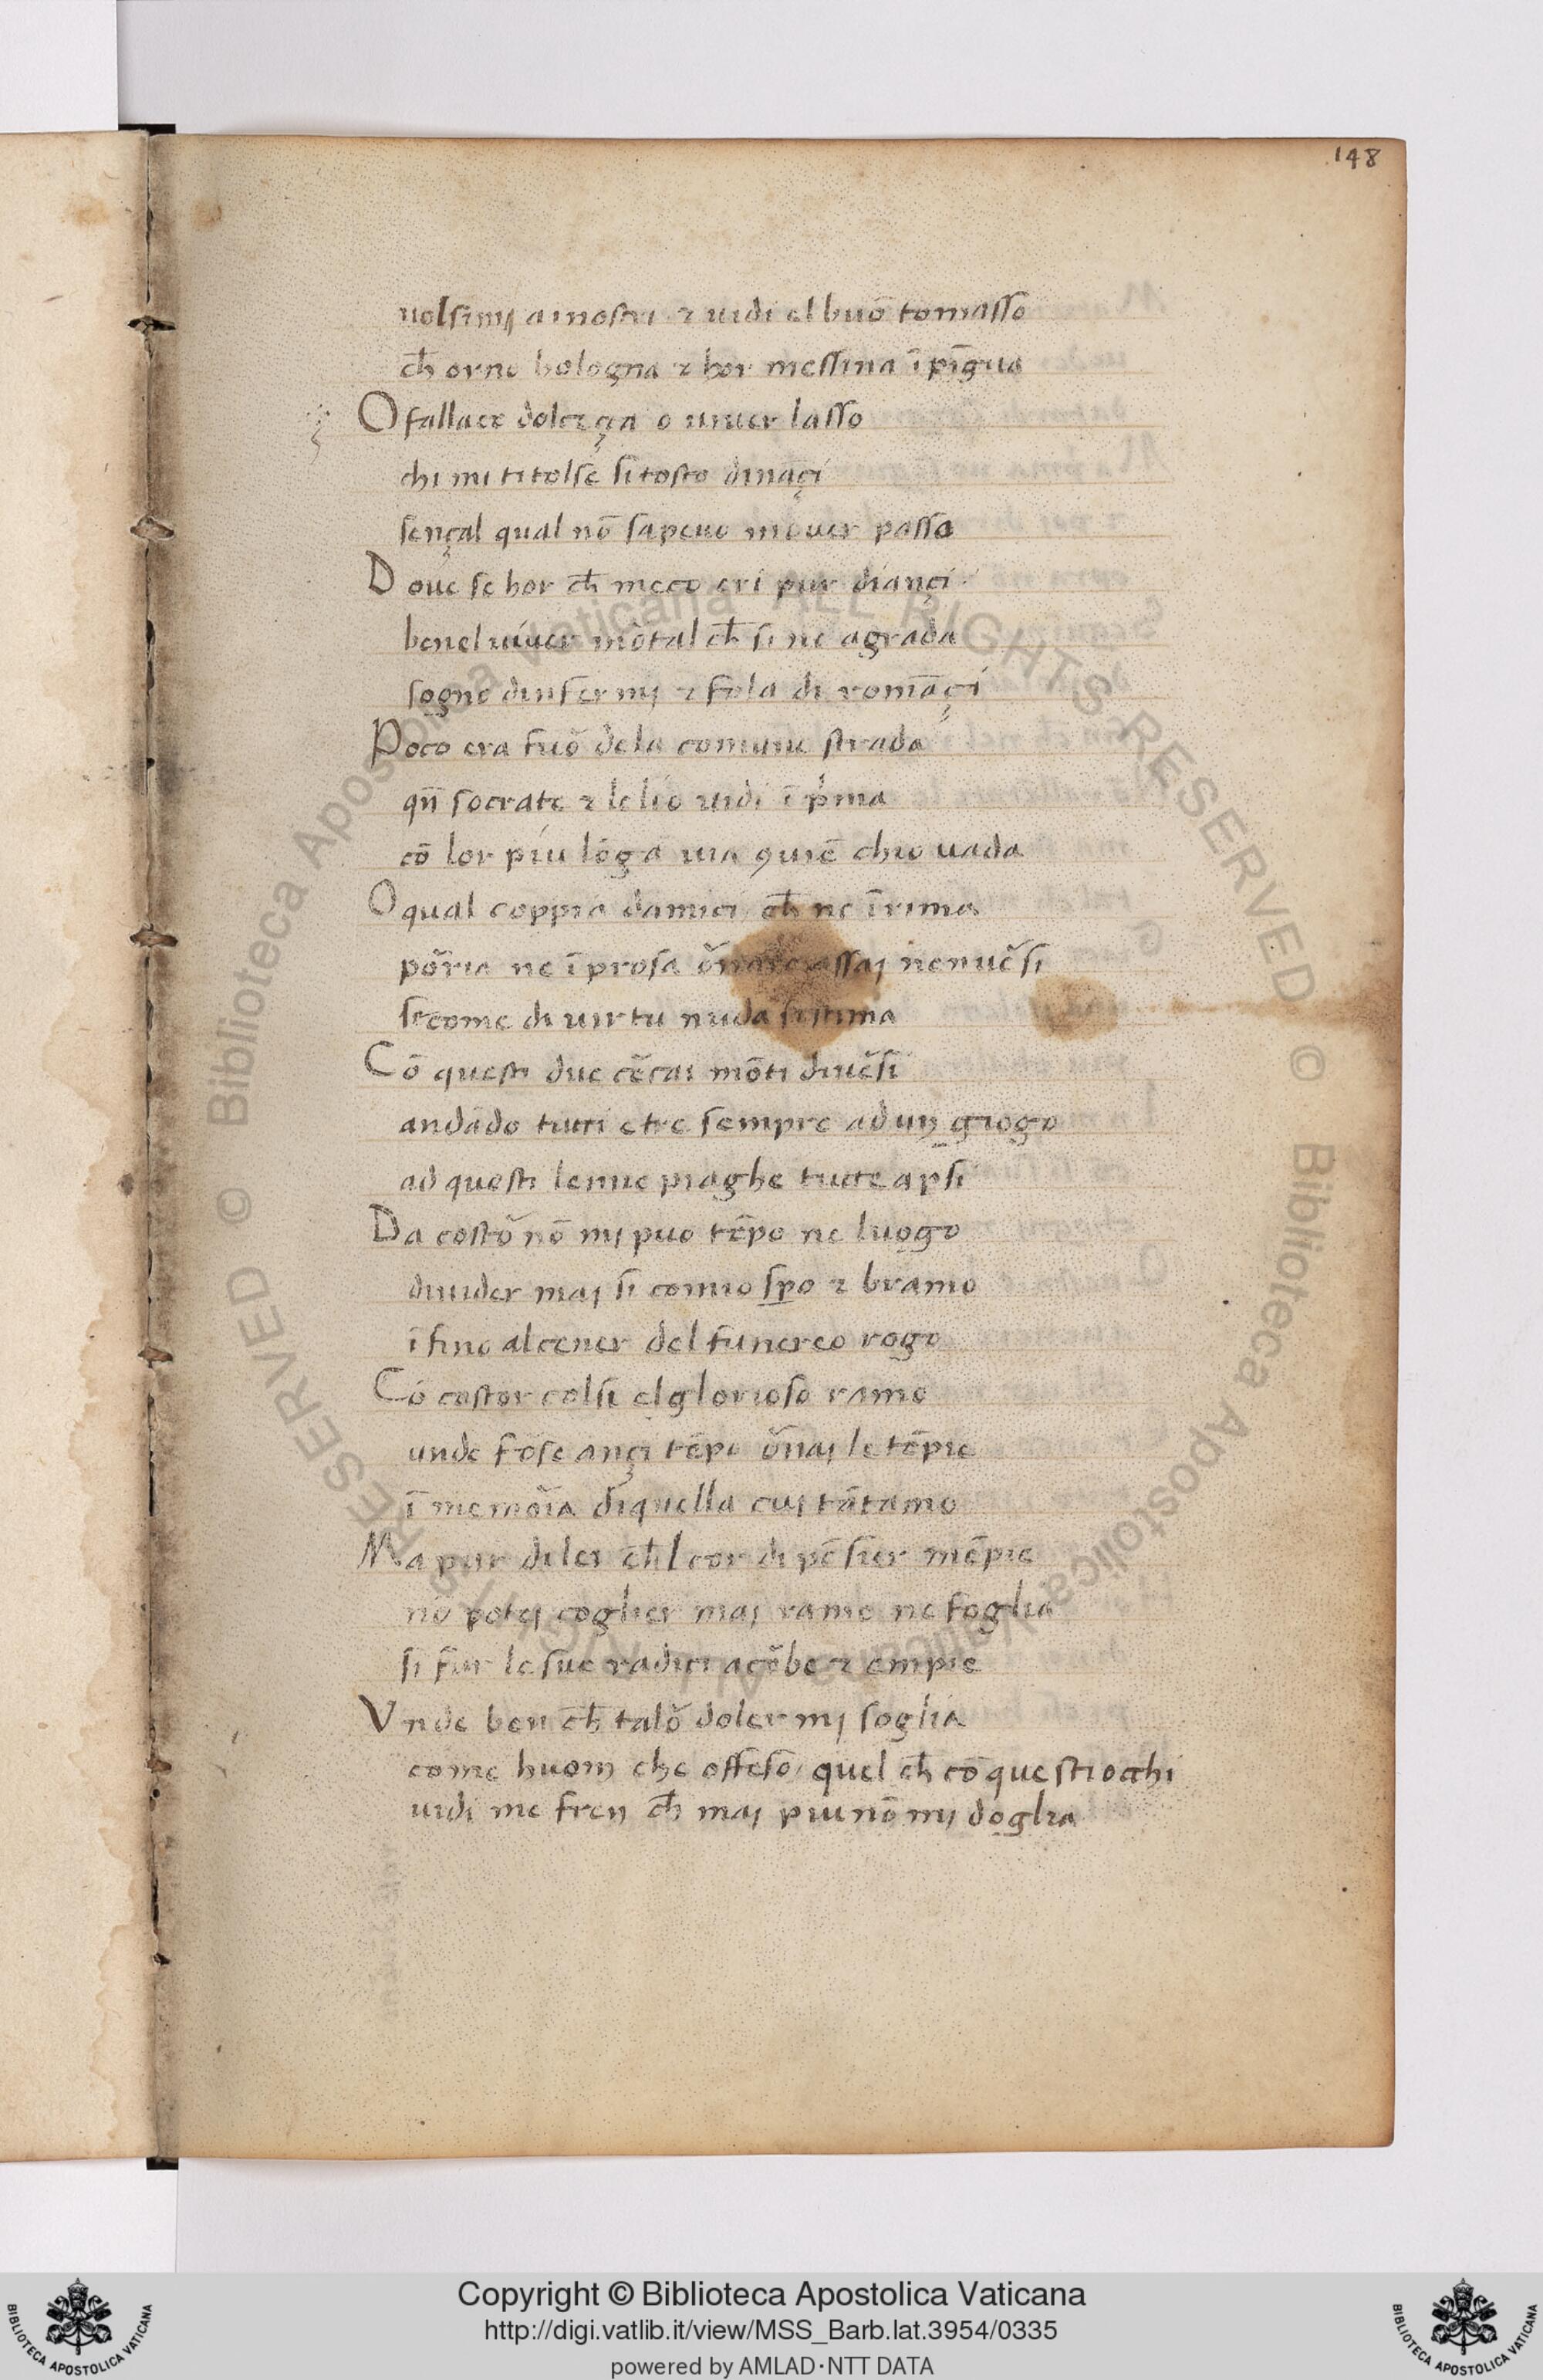 148
uolsimj a i nostri ⁊ uidi el buō tomasso
ch̄ orno bologna ⁊ hor messina ī pīgua
O fallace dolceça o uiuer lasso
chi mi ti tolse si tosto dināçi
sençal qual nō sapeuo mouer passo
Doue se hor ch̄ meco eri pur diançi
benel uiuer mōtal ch̄ si ne agrada
sogno dinfermj ⁊ fola di romāçi
Poco era fuō dela comune strada
qn̄ socrate ⁊ lelio uidi ī pʳma
cō lor piu lōga uia ꝯuiē chio uada
O qual coppia damici ch̄ ne ī rima
pōria ne ī prosa ōnare assaj ne nuēsi
se come di uirtu nuda si stima
Cō questi due cēcai mōti diuēsi
andādo tutti etre sempre ad un giogo
ad questi lemie piaghe tucte apsi
Da costō nō mj puo tēpo ne luogo
diuider maj si comio sꝑo ⁊ bramo
ī fino alcener del funereo rogo
Cō costor colsi el glorioso ramo
unde fōse ançi tēpo ōnaj le tēpie
ī memōia di quella cuj tātamo
Ma pur di lei ch̄l cor di pēsier mēpie
nō potej coglier maj ramo ne foglia
si fur le sue radici acēbe ⁊ empie
Vnde ben ch̄ talō doler mj soglia
come huom che offeso quel ch̄ cō questi occhi
uidi me fren ch̄ maj piu nō mj doglia
© Biblioteca Apostolica Vaticana ALL RIGHTS RESERVED © Biblioteca Apostolica Vaticana ALL RIGHTS RESERVED
Copyright © Biblioteca Apostolica Vaticana
http://digi.vatlib.it/view/MSS_Barb.lat.3954/0335
powered by AMLAD·NTT DATA
BIBLIOTECA APOSTOLICA VATICANA
BIBLIOTECA APOSTOLICA VATICANA